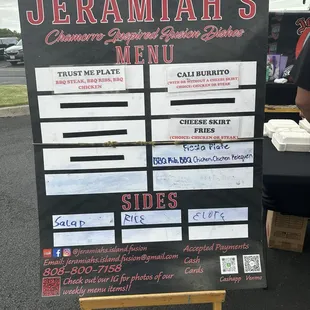 JERAMIAH'S
Chamorro Inspired Fusion Dishes
MENU
TRUST ME PLATE
BBQ STEAK, BBQ RIBS, BBQ
CHICKEN
CALI BURRITO
CHOICE: CHICKEN OR STEAK
CHEESE SKIRT
FRIES
(CHOICE: CHICKEN OR STEAK)
Fiesta Plate
BBQ Chicken, Chicken
SIDES
Salad
RICE
@jeramiahs.island.fusion
Email: jeramiahs.island.fusion@gmail.com
808-800-7158
Check out our IG for photos of our
weekly menu items!
Accepted Payments
Cash
Cards
Cashapp Venmo